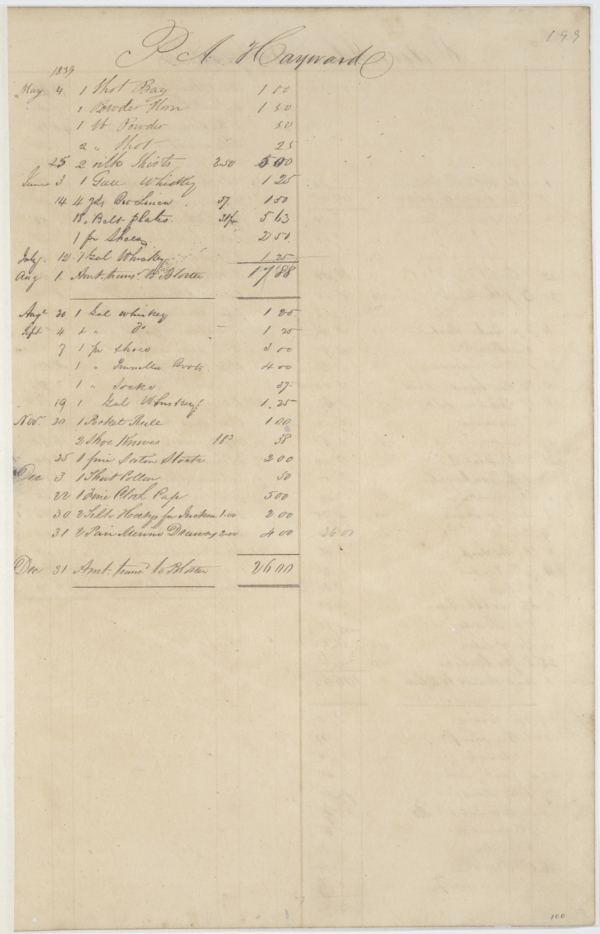 199
P. A. Hayward
1839
May 4 1 Shot Bag 1 00
" Powder Horn 1 50
1 lb Powder 50
2 " Shot 25
25 2 Shirts 250 5 00
June 3 1 Gall Whiskey 1 25
14 4 yds Linen 37 1 50
18 " Belt plates 31¼ 5 63
1 pr Shoes 2 51
July 12 1 Gal Whiskey 1 25
Aug 1 Amt. trans. to Blotter 17 88
Augt 30 1 Gal whiskey 1 25
Sept 4 1 " Do 1 25
" 7 1 pr shoes 3 00
1 " Boots 4 00
1 " Socks 37
" 19 1 Gal Whiskey 1.25
Nov. 20 1 Pocket Rule 1 00
2 Shoe Knives 18¾ 38
25 1 Stock 2 00
Dec 3 1 Shirt Collar 50
22 1 Cloth Cap 5 00
30 2 Silk for 1.00 2 00
31 2 Pair Merino Drawers 2.00 4 00 26 00
Dec 31 Amt. trans. to Blotter 26 00
100